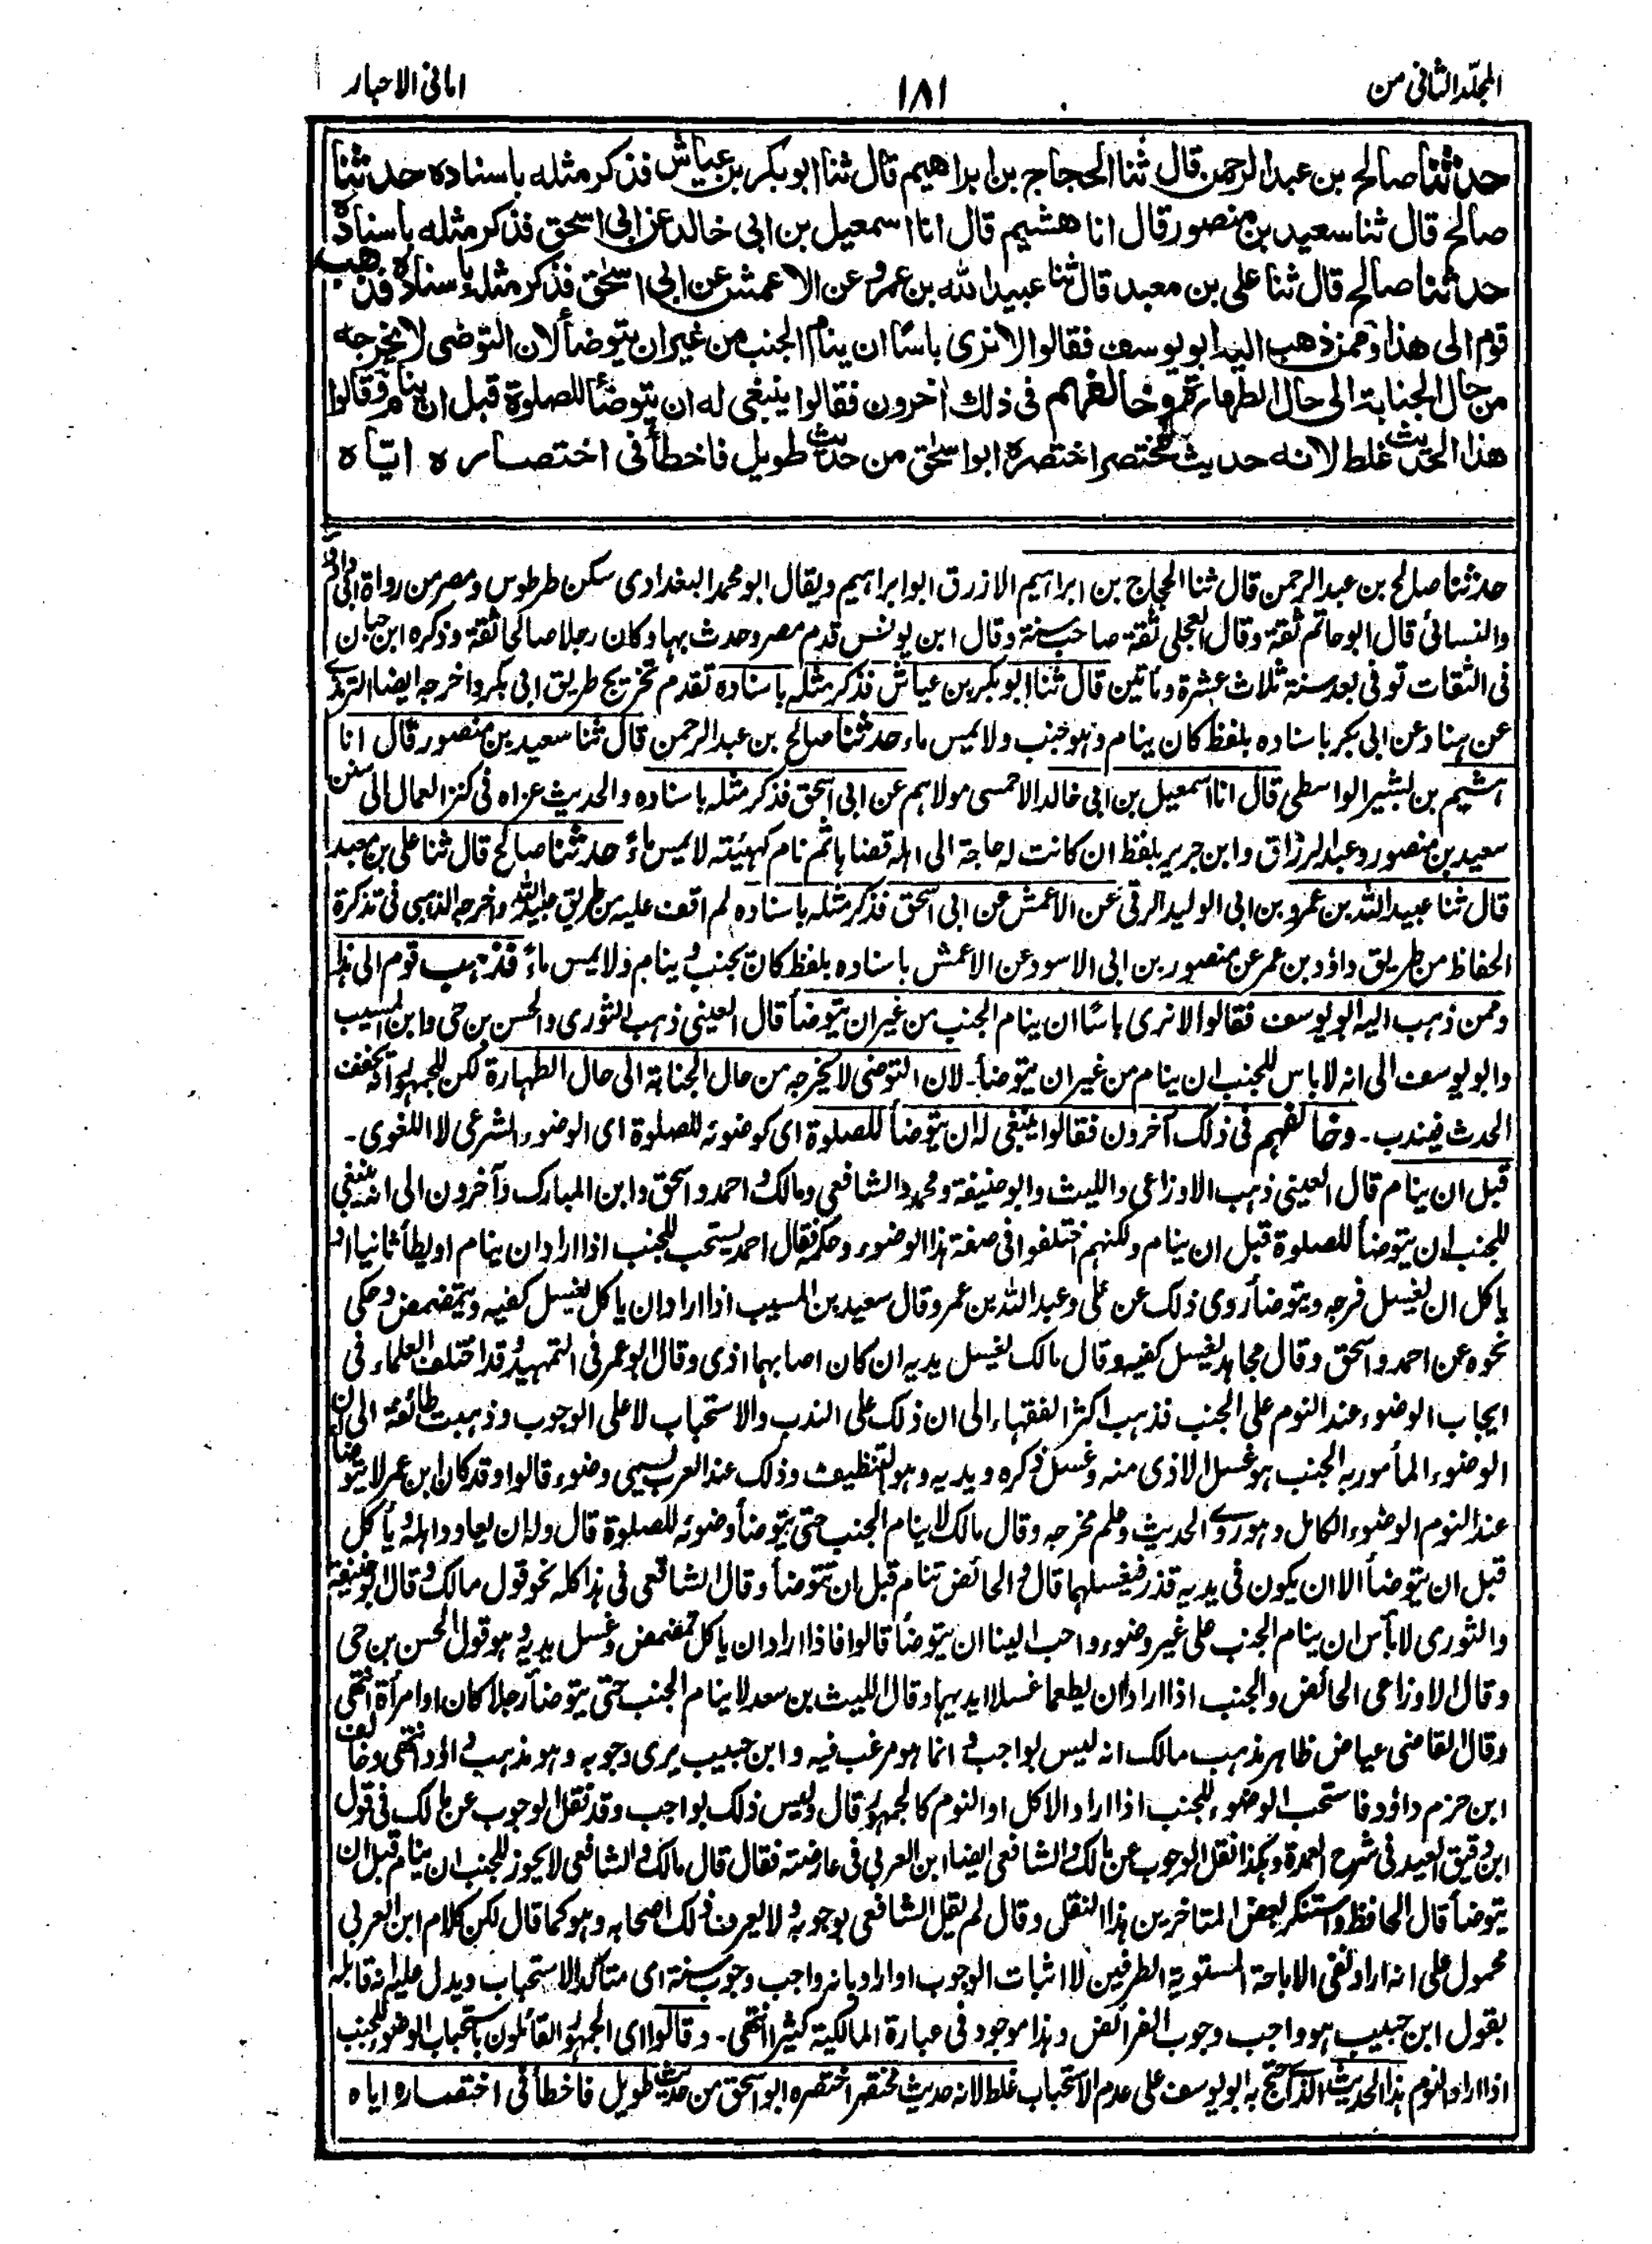 المجلد الثانی من
١٨١
امانی الاحبار
حدثنا صالح بن عبد الرحمن قال ثنا الحجاج بن ابراهیم قال ثنا ابو بکر بن عیاش فذکر مثله باسناده حدثنا
صالح قال ثنا سعید بن منصور قال انا هشیم قال انا اسمعیل بن ابی خالد عن ابی اسحق فذکر مثله باسناده
حدثنا صالح قال ثنا علی بن معبد قال ثنا عبید الله بن عمرو عن الاعمش عن ابی اسحق فذکر مثله باسناده فذهب
قوم الی هذا وممن ذهب الیه ابو یوسف فقالوا لا نری باسًا ان ینام الجنب من غیر ان یتوضأ لان التوضی لا یخرجه
من حال الجنابة الی حال الطهارة وخالفهم فی ذلك اخرون فقالوا ینبغی له ان یتوضأ للصلوة قبل ان ینام وقالوا
هذا الحدیث غلط لانه حدیث مختصر اختصره ابو اسحق من حدیث طویل فاخطأ فی اختصاره ایاه
حدثنا صالح بن عبد الرحمن قال ثنا الحجاج بن ابراہیم الازرق ابو ابراہیم ویقال ابو محمد البغدادی سکن طرطوس ومصر من رواة ابی داؤد
والنسائی قال ابو حاتم ثقة وقال العجلی ثقة صاحب سنة وقال ابن یونس قدم مصر وحدث بہا وکان رجلا صالحا ثقة وذکره ابن حبان
فی الثقات توفی بعد سنة ثلاث عشرة ومأتین قال ثنا ابو بکر بن عیاش فذکر مثله باسناده تقدم تخریج طریق ابی بکر واخرجه ایضا الترمذی
عن ہناد عن ابی بکر باسناده بلفظ کان ینام وہو جنب ولا یمس ماء حدثنا صالح بن عبد الرحمن قال ثنا سعید بن منصور قال انا
ہشیم بن بشیر الواسطی قال انا اسمعیل بن ابی خالد الاحمسی مولاہم عن ابی اسحق فذکر مثله باسناده والحدیث عزاه فی کنز العمال الی سنن
سعید بن منصور وعبد الرزاق وابن جریر بلفظ ان کانت له حاجة الی اہله قضاہا ثم نام کہیئته لا یمس ماءً حدثنا صالح قال ثنا علی بن معبد
قال ثنا عبید الله بن عمرو بن ابی الولید الرقی عن الاعمش عن ابی اسحق فذکر مثله باسناده لم اقف علیه من طریق عبید الله واخرجه الذہبی فی تذکرة
الحفاظ من طریق داؤد بن عمر عن منصور بن ابی الاسود عن الاعمش باسناده بلفظ کان یجنب ثم ینام ولا یمس ماءً فذہب قوم الی ہذا
وممن ذہب الیه ابو یوسف فقالوا لا نری باسًا ان ینام الجنب من غیر ان یتوضأ قال العینی ذہب الثوری والحسن بن حی وابن المسیب
وابو یوسف الی انه لا باس للجنب ان ینام من غیر ان یتوضأ۔ لان التوضی لا یخرجه من حال الجنابة الی حال الطہارة لکن للجمہور انه یخفف
الحدث فیندب۔ وخالفہم فی ذلک آخرون فقالوا ینبغی له ان یتوضأ للصلوة ای کوضوئه للصلوة ای الوضوء الشرعی لا اللغوی۔
قبل ان ینام قال العینی ذہب الاوزاعی واللیث وابو حنیفة ومحمد والشافعی ومالک واحمد واسحق وابن المبارک وآخرون الی انه ینبغی
للجنب ان یتوضأ للصلوة قبل ان ینام ولکنہم اختلفوا فی صفة ہذا الوضوء وحکمه فقال احمد یستحب للجنب اذا اراد ان ینام او یطأ ثانیا او
یاکل ان یغسل فرجه ویتوضأ روی ذلک عن علی وعبد الله بن عمر وقال سعید بن المسیب اذا اراد ان یاکل یغسل کفیه ویتمضمض وحکی
نحوه عن احمد واسحق وقال مجاہد یغسل کفیه وقال مالک یغسل یدیه ان کان اصابہما اذی وقال ابو عمر فی التمہید وقد اختلف العلماء فی
ایجاب الوضوء عند النوم علی الجنب فذہب اکثر الفقہاء الی ان ذلک علی الندب والاستحباب لا علی الوجوب وذہبت طائفة الی ان
الوضوء المأمور به الجنب ہو غسل الاذی منه وغسل ذکره ویدیه وہو التنظیف وذلک عند العرب یسمی وضوء قالوا وقد کان ابن عمر لا یتوضأ
عند النوم الوضوء الکامل وہو روی الحدیث وعلم مخرجه وقال مالک لا ینام الجنب حتی یتوضأ وضوئه للصلوة قال وله ان یعاود اہله ویأکل
قبل ان یتوضأ الا ان یکون فی یدیه قذر فیغسلہما قال والحائض تنام قبل ان تتوضأ وقال الشافعی فی ہذا کله نحو قول مالک وقال ابو حنیفة
والثوری لا بأس ان ینام الجنب علی غیر وضوء واحب الینا ان یتوضأ قالوا فاذا اراد ان یاکل تمضمض وغسل یدیه وہو قول الحسن بن حی
وقال الاوزاعی الحائض والجنب اذا ارادا ان یطعما غسلا ایدیہما وقال اللیث بن سعد لا ینام الجنب حتی یتوضأ رجلا کان او امرأة انتہی
وقال القاضی عیاض ظاہر مذہب مالک انه لیس بواجب وانما ہو مرغب فیه وابن حبیب یری وجوبه وہو مذہب داؤد انتہی وخالف
ابن حزم داؤد فاستحب الوضوء للجنب اذا اراد الاکل او النوم کالجمہور قال ولیس ذلک بواجب وقد نقل الوجوب عن مالک فی قول
ابن دقیق العید فی شرح العمدة وکذا نقل الوجوب عن مالک والشافعی ایضا ابن العربی فی عارضته فقال قال مالک والشافعی لا یجوز للجنب ان ینام قبل ان
یتوضأ قال الحافظ واستنکر بعض المتاخرین ہذا النقل وقال لم یقل الشافعی بوجوبه ولا یعرف ذلک اصحابه وہو کما قال لکن کلام ابن العربی
محمول علی انه اراد نفی الاباحة المستویة الطرفین لا اثبات الوجوب او اراد بانه واجب وجوب سنة ای متأکد الاستحباب ویدل علیه انه قابله
بقول ابن حبیب ہو واجب وجوب الفرائض وہذا موجود فی عبارة المالکیة کثیرا انتہی۔ وقالوا ای الجمہور القائلون باستحباب الوضوء للجنب
اذا اراد النوم ہذا الحدیث الذی احتج به ابو یوسف علی عدم الاستحباب غلط لانه حدیث مختصر اختصره ابو اسحق من حدیث طویل فاخطأ فی اختصاره ایاه